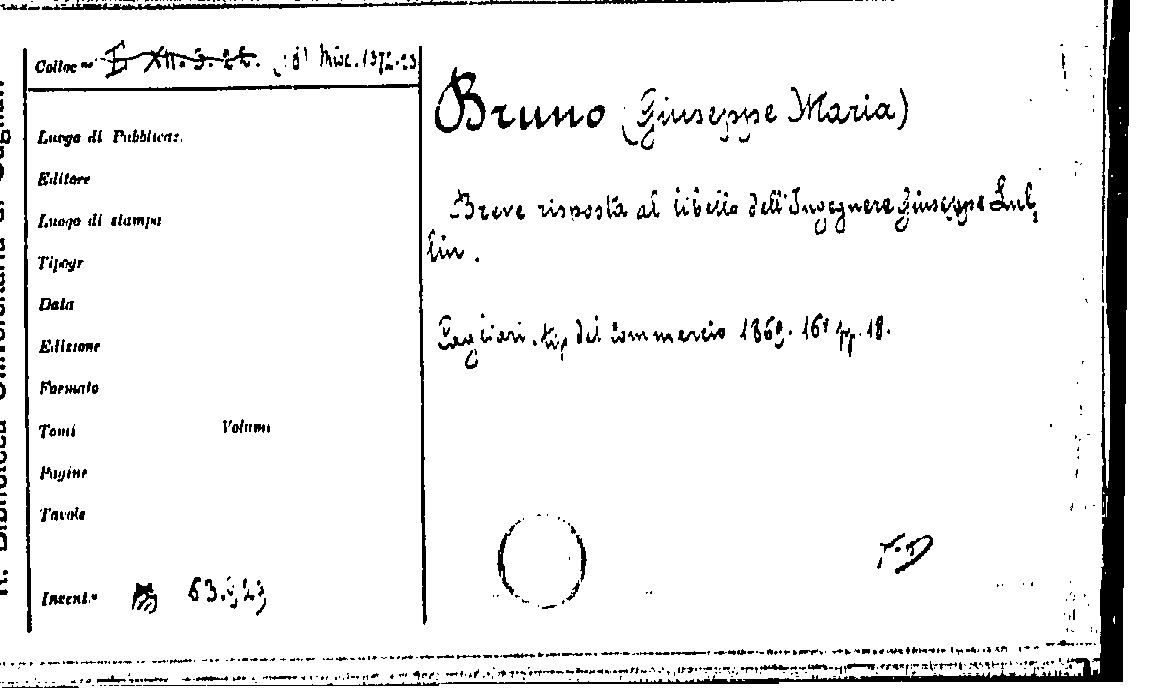 R. Biblioteca Universitaria di Cagliari
Colloc.ne Misc. 1372.23
Luogo di Pubblicaz.
Editore
Luogo di stampa
Tipogr
Data
Edizione
Formato
Tomi Volumi
Pagine
Tavole
Invent.o
Bruno (Giuseppe Maria)
Breve risposta al libello dell'Ingegnere Giuseppe Lul,
lin.
Cagliari. tip del Commercio 1869. 16° pp. 18.